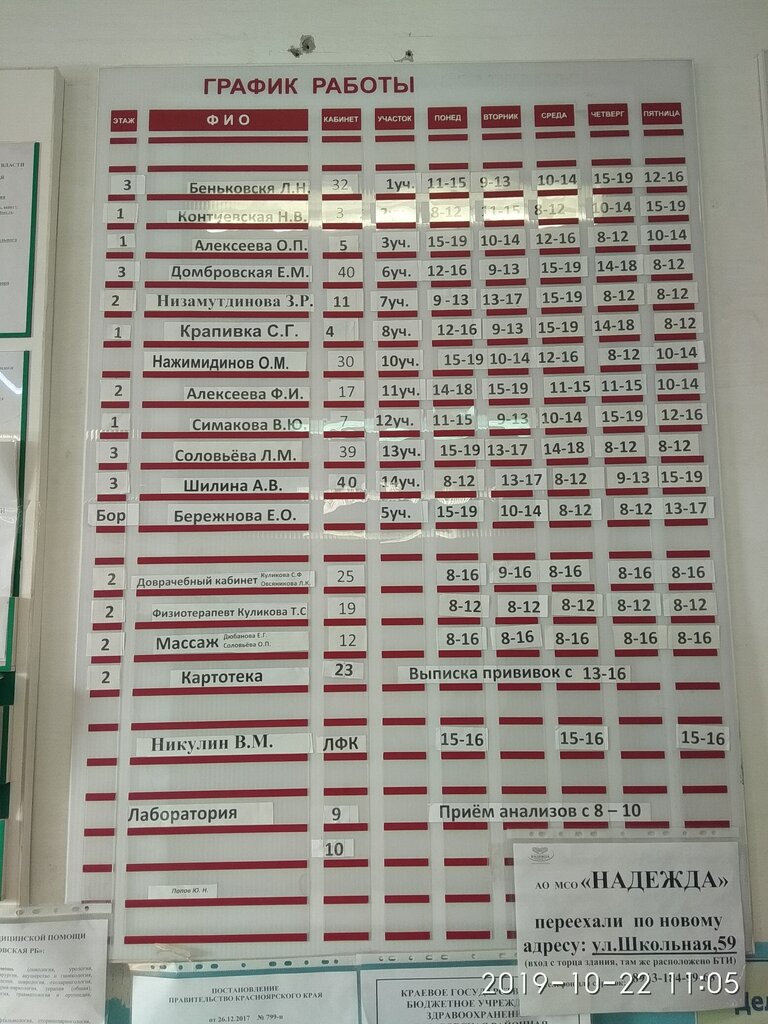 ГРАФИК РАБОТЫ
ЭТАЖ Ф И О КАБИНЕТ УЧАСТОК ПОНЕД ВТОРНИК СРЕДА ЧЕТВЕРГ ПЯТНИЦА
3 Беньковскя Л.Н. 32 1уч. 11-15 9-13 10-14 15-19 12-16
1 Контиевская Н.В. 3 8-12 11-15 8-12 10-14 15-19
1 Алексеева О.П. 5 3уч. 15-19 10-14 12-16 8-12 10-14
3 Домбровская Е.М. 40 6уч. 12-16 9-13 15-19 14-18 8-12
2 Низамутдинова З.Р. 11 7уч. 9-13 13-17 15-19 8-12 8-12
1 Крапивка С.Г. 4 8уч. 12-16 9-13 15-19 14-18 8-12
Нажимидинов О.М. 30 10уч. 15-19 10-14 12-16 8-12 10-14
2 Алексеева Ф.И. 17 11уч. 14-18 15-19 11-15 11-15 10-14
1 Симакова В.Ю. 7 12уч. 11-15 9-13 10-14 15-19 12-16
3 Соловьёва Л.М. 39 13уч. 15-19 13-17 14-18 8-12 8-12
3 Шилина А.В. 40 14уч. 8-12 13-17 8-12 9-13 15-19
Бор Бережнова Е.О. 5уч. 15-19 10-14 8-12 8-12 13-17
2 Доврачебный кабинет Куликова С.Ф Овсяникова Л.К. 25 8-16 9-16 8-16 8-16 8-16
2 Физиотерапевт Куликова Т.С 19 8-12 8-12 8-12 8-12 8-12
2 Массаж Дюбанова Е.Г. Соловьёва О.П. 12 8-16 8-16 8-16 8-16 8-16
2 Картотека 23 Выписка прививок с 13-16
Никулин В.М. ЛФК 15-16 15-16 15-16
Лаборатория 9 Приём анализов с 8 – 10
10
Попов Ю. Н.
АО МСО «НАДЕЖДА»
переехали по новому
адресу: ул.Школьная,59
(вход с торца здания, там же расположено БТИ)
2019-10-22 11:05
ПОСТАНОВЛЕНИЕ
ПРАВИТЕЛЬСТВО КРАСНОЯРСКОГО КРАЯ
от 26.12.2017 № 799-п
КРАЕВОЕ
БЮДЖЕТНОЕ
ЗДРАВООХРАНЕН